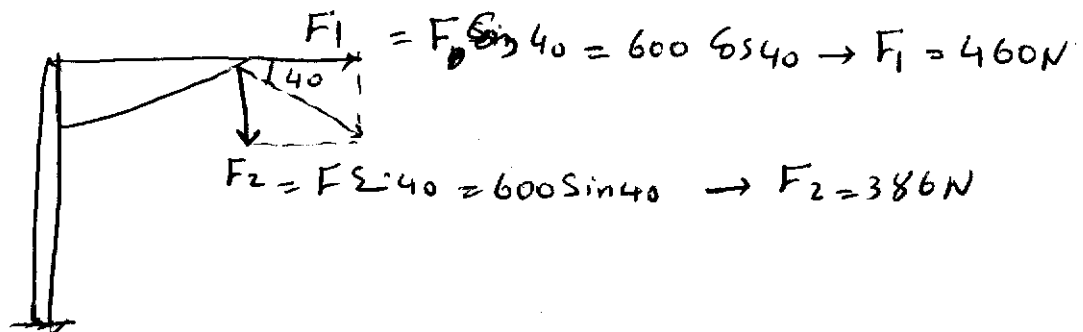 F1 = F Cos 40 = 600 Cos 40 → F1 = 460N
40
F2 = F Sin 40 = 600 Sin 40 → F2 = 386N